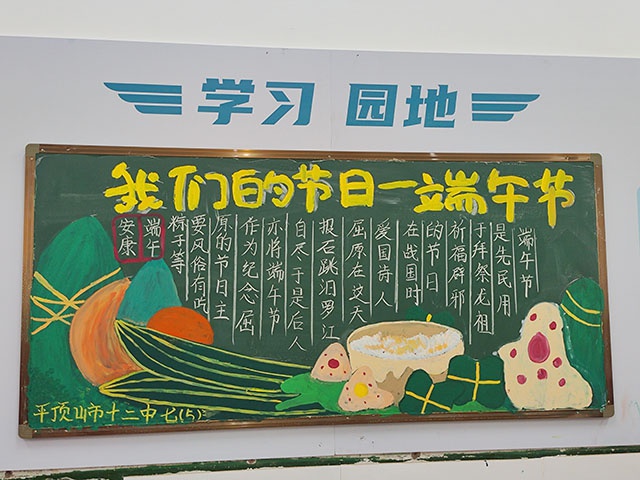 学习 园地
我们的节日—端午节
端午节
是先民用
于拜祭龙祖
祈福辟邪
的节日
在战国时
爱国诗人
屈原在这天
报石跳汨罗江
自尽于是后人
亦将端午节
作为纪念屈
原的节日主
要风俗有吃
粽子等
端午
安康
平顶山市十二中七(5)